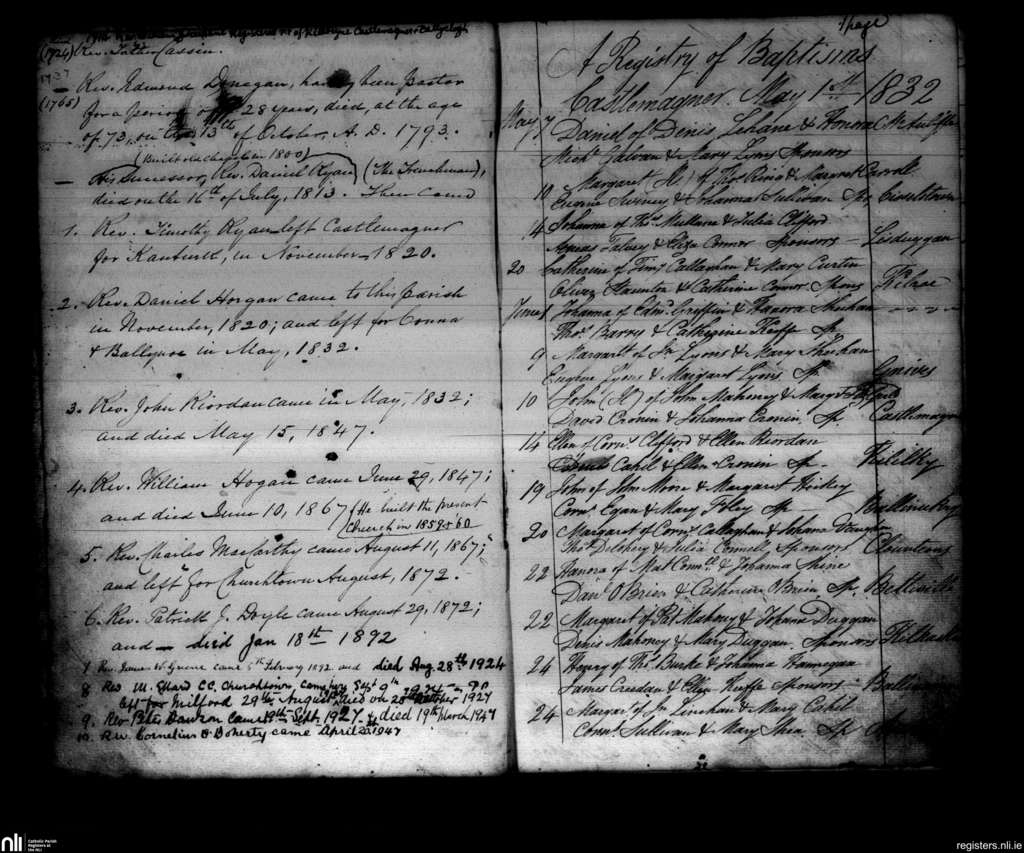 (1724) Rev. Father Cassin.
1727
Rev. Edmund Donegan, having been Pastor
(1765) for a period of 28 years, died, at the age
of 73, on the 13th of October, A. D. 1793.
(Built old chapel in 1800)
— His Successor, Rev. Daniel Ryan (The Frenchman),
died on the 16th of July, 1813. Then came
1. Rev. Timothy Ryan left Castlemagner
for Kanturk, in November 1820.
2. Rev. Daniel Horgan came to this Parish
in November, 1820; and left for Conna
& Ballynoe in May, 1832.
3. Rev. John Riordan came in May, 1832;
and died May 15, 1847.
4. Rev. William Hogan came June 29, 1847;
and died June 10, 1867 (He built the present
Church in 1859 & 60
5. Rev. Charles Macarthy came August 11, 1867;
and left for Churchtown August, 1872.
6. Rev. Patrick J. Doyle came August 29, 1872;
and — died Jan 18th 1892
7 Rev. James W. Greene came 5th February 1892 and died Aug. 28th 1924
8 Rev M. Ellard CC. Churchtown, came Sept 9th
left for Milford 29th August died on 20 October 1927
9. Rev. Peter Dawson came 19th Sept. 1927 & died 19th March 1947
10. Rev. Cornelius O'Doherty came April 1947
1 page
A Registry of Baptisms
Castlemagner. May 1st 1832
May 7 Daniel of Denis Lehane & Honora McAuliffe
Michl Galvan & Mary Lyons Sponsors
10 Margaret of Thos Rierdan & Margret Carroll
Eugene Swiney & Johanna Sullivan Sp
14 Johanna of Thos Mullane & Julia Clifford
Aeneas Falvey & Eliza Connor Sponsors — Lisduggan
20 Catherine of Timy Callaghan & Mary Curtin
Oliver Staunton & Catherine Connor Spons
June 1 Johanna of Edmd Griffin & Hanora Sheehan
Thos Barry & Catherine Keeffe Sp
9 Margaret of Jn Lyons & Mary Sheehan
Eugene Lyons & Margaret Lyons Sp
10 John of John Mahoney & Mary
David Cronin & Johanna Cronin Sp Castlemagner
14 Ellen of Corns Clifford & Ellen Riordan
Cahil & Ellen Cronin Sp
19 John of John Moore & Margaret Hickey
Corns Egan & Mary Foley Sp
20 Margaret of Corns Callaghan & Johana
Thos Delohery & Julia Connell Sponsors
22 Hanora of Mat Connell & Johanna Shine
Danl OBrien & Catherine OBrien Sp
22 Margaret of Pat Mahony & Johana Duggan
Denis Mahoney & Mary Duggan Sponsors
24 Henry of Thos Burke & Johanna Hannegan
James Creedan & Ellen Keeffe Sponsors
24 Margar of Jn Linehan & Mary Cahil
Corns Sullivan & Mary Shea Sp
nli Catholic Parish
Registers at
the NLI
registers.nli.ie